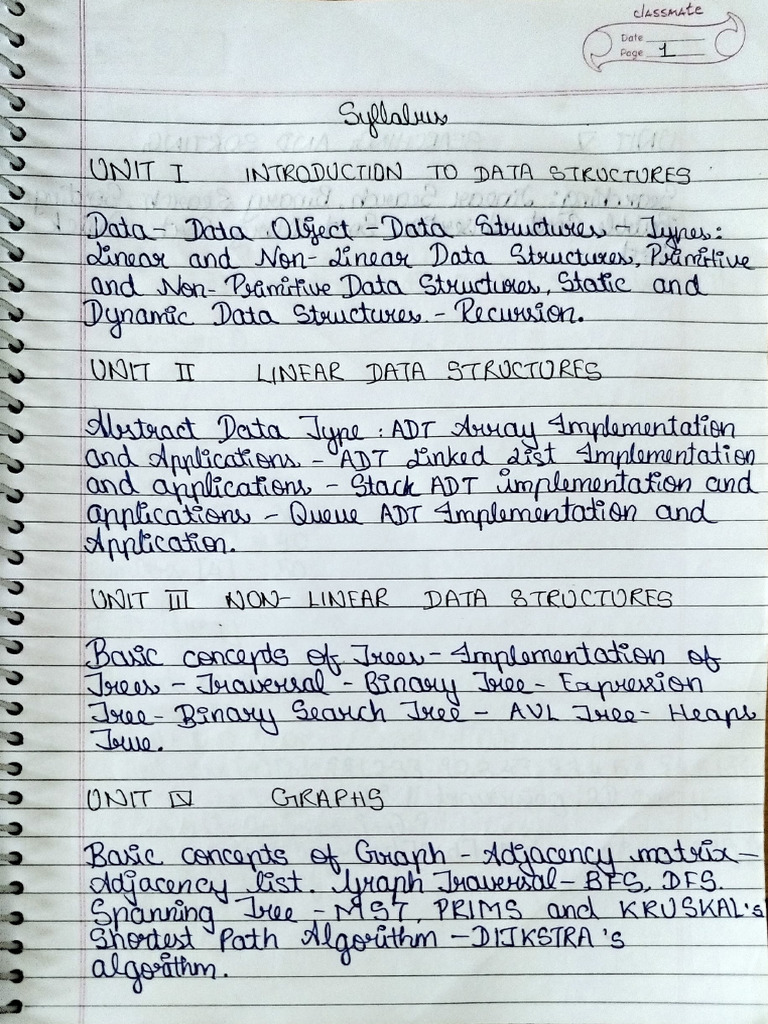 classmate
Date
Page 1
Syllabus
UNIT I INTRODUCTION TO DATA STRUCTURES
Data- Data Object - Data Structures - Types:
Linear and Non-Linear Data Structures, Primitive
and Non-Primitive Data Structures, Static and
Dynamic Data Structures - Recursion.
UNIT II LINEAR DATA STRUCTURES
Abstract Data Type : ADT Array Implementation
and Applications - ADT Linked List Implementation
and applications - Stack ADT implementation and
applications - Queue ADT Implementation and
Application.
UNIT III NON-LINEAR DATA STRUCTURES
Basic concepts of Trees - Implementation of
Trees - Traversal - Binary Tree - Expression
Tree - Binary Search Tree - AVL Tree - Heaps
True.
UNIT IV GRAPHS
Basic concepts of Graph - Adjacency matrix -
Adjacency list. Graph Traversal - BFS, DFS.
Spanning Tree - MST, PRIMS and KRUSKAL's
Shortest Path Algorithm - DIJKSTRA's
algorithm.